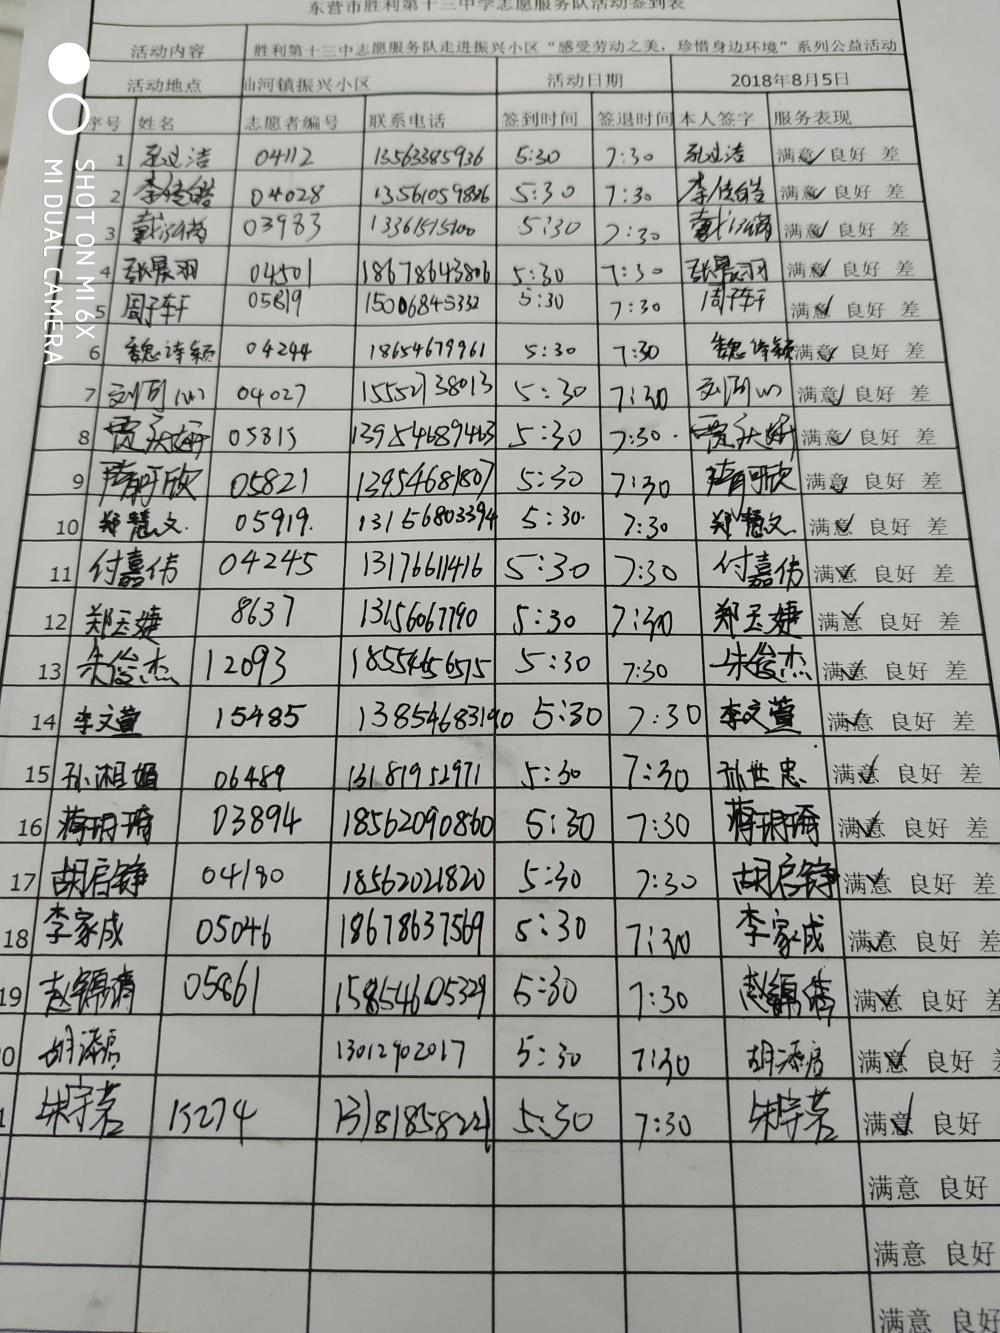 东营市胜利第十三中学志愿服务队活动签到表
活动内容 胜利第十三中志愿服务队走进振兴小区“感受劳动之美，珍惜身边环境”系列公益活动
活动地点 仙河镇振兴小区 活动日期 2018年8月5日
序号 姓名 志愿者编号 联系电话 签到时间 签退时间 本人签字 服务表现
1 04112 13563385936 5:30 7:30 满意✓ 良好 差
2 李佳皓 04028 13561059826 5:30 7:30 李佳皓 满意✓ 良好 差
3 03983 13361515100 5:30 7:30 满意✓ 良好 差
4 张晨羽 04501 18678643806 5:30 7:30 张晨羽 满意✓ 良好 差
5 周子轩 05819 15006845332 5:30 7:30 周子轩 满意✓ 良好 差
6 魏诗颖 04244 18654679961 5:30 7:30 魏诗颖 满意✓ 良好 差
7 04027 15552738013 5:30 7:30 满意✓ 良好 差
8 05815 13954689463 5:30 7:30 满意✓ 良好 差
9 隋可欣 05821 13954681807 5:30 7:30 隋可欣 满意✓ 良好 差
10 郑慧文 05919 13156803394 5:30 7:30 郑慧文 满意✓ 良好 差
11 付嘉伟 04245 13176611416 5:30 7:30 付嘉伟 满意✓ 良好 差
12 郑玉婕 8637 13156067790 5:30 7:30 郑玉婕 满意✓ 良好 差
13 朱俊杰 12093 18554656515 5:30 7:30 朱俊杰 满意✓ 良好 差
14 李文萱 15485 13854683190 5:30 7:30 李文萱 满意✓ 良好 差
15 孙湘娟 06489 13181952971 5:30 7:30 孙世忠 满意✓ 良好 差
16 蒋玥琦 03894 18562090860 5:30 7:30 蒋玥琦 满意✓ 良好 差
17 胡启铮 04180 18562021820 5:30 7:30 胡启铮 满意✓ 良好 差
18 李家成 05046 18678637569 5:30 7:30 李家成 满意✓ 良好 差
19 赵锦清 05861 15854605329 5:30 7:30 赵锦清 满意✓ 良好 差
0 13012902017 5:30 7:30 满意✓ 良好 差
1 朱宇茗 15274 13181858221 5:30 7:30 朱宇茗 满意✓ 良好
满意 良好
满意 良好
满意 良好
SHOT ON MI 6X
MI DUAL CAMERA